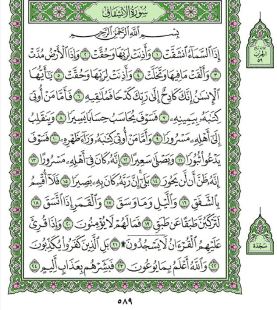 سُورَةُ الانشِقَاقِ
بِسْمِ اللَّهِ الرَّحْمَٰنِ الرَّحِيمِ
إِذَا السَّمَاءُ انشَقَّتْ ١ وَأَذِنَتْ لِرَبِّهَا وَحُقَّتْ ٢ وَإِذَا الْأَرْضُ مُدَّتْ
٣ وَأَلْقَتْ مَا فِيهَا وَتَخَلَّتْ ٤ وَأَذِنَتْ لِرَبِّهَا وَحُقَّتْ ٥ يَا أَيُّهَا
الْإِنسَانُ إِنَّكَ كَادِحٌ إِلَىٰ رَبِّكَ كَدْحًا فَمُلَاقِيهِ ٦ فَأَمَّا مَنْ أُوتِيَ
كِتَابَهُ بِيَمِينِهِ ٧ فَسَوْفَ يُحَاسَبُ حِسَابًا يَسِيرًا ٨ وَيَنقَلِبُ
إِلَىٰ أَهْلِهِ مَسْرُورًا ٩ وَأَمَّا مَنْ أُوتِيَ كِتَابَهُ وَرَاءَ ظَهْرِهِ ١٠ فَسَوْفَ
يَدْعُو ثُبُورًا ١١ وَيَصْلَىٰ سَعِيرًا ١٢ إِنَّهُ كَانَ فِي أَهْلِهِ مَسْرُورًا ١٣
إِنَّهُ ظَنَّ أَن لَّن يَحُورَ ١٤ بَلَىٰ إِنَّ رَبَّهُ كَانَ بِهِ بَصِيرًا ١٥ فَلَا أُقْسِمُ
بِالشَّفَقِ ١٦ وَاللَّيْلِ وَمَا وَسَقَ ١٧ وَالْقَمَرِ إِذَا اتَّسَقَ ١٨
لَتَرْكَبُنَّ طَبَقًا عَن طَبَقٍ ١٩ فَمَا لَهُمْ لَا يُؤْمِنُونَ ٢٠ وَإِذَا قُرِئَ
عَلَيْهِمُ الْقُرْآنُ لَا يَسْجُدُونَ ۩ ٢١ بَلِ الَّذِينَ كَفَرُوا يُكَذِّبُونَ
٢٢ وَاللَّهُ أَعْلَمُ بِمَا يُوعُونَ ٢٣ فَبَشِّرْهُم بِعَذَابٍ أَلِيمٍ ٢٤
سَجْدَة
٥٨٩